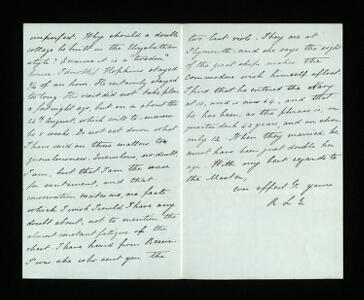 imperfect. Why should a double
cottage be built in the Elizabethan
style? Because it is a "tweedon"
house. I doubt if Hopkins stayed
3/4 of an hour. He certainly stayed
too long. His visit did not take place
a fortnight ago, but on or about the
24th August, which will to-morrow
be 6 weeks. Do not set down what
I have said on these matters to
querulousness. Querulous, no doubt,
I am, but that I am the worse
for excitement, and that
conversation excites me, are facts
which I wish I could I have any
doubt about, not to mention the
almost constant fatigue of the
chest. I have heard from
I was she who sent you the
two last vols. They are at
Plymouth: and she says the sight
of the great ships makes the
Commodore wish himself afloat.
I find that he entered the Navy
at 12, and is now 64, and that
he has been, as the phrase is, on
quarter deck 43 years and on shore
only 12. When they married he
must have been just double her
age. With my best regards to
the Master,
ever affectly yours
R L E